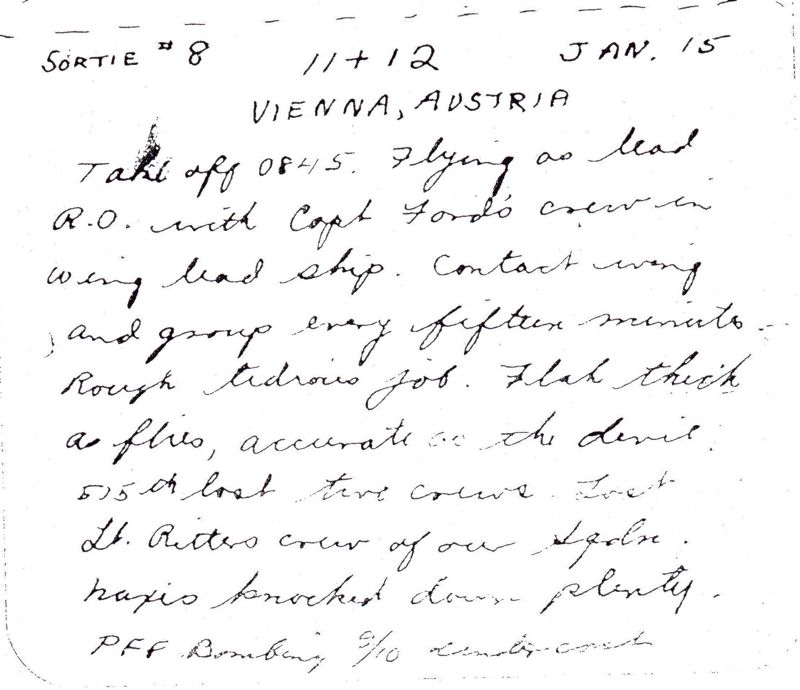 SORTIE #8 11+12 JAN. 15
VIENNA, AUSTRIA
Take off 0845. Flying as lead
R.O. with Capt Ford's crew in
wing lead ship. Contact wing
and group every fifteen minutes.
Rough tedious job. Flak thick
as flies, accurate as the devil.
515th lost two crews. Lost
Lt. Ritters crew of our Sqdn.
naxis knocked down plenty.
PFF Bombing 9/10 undercast